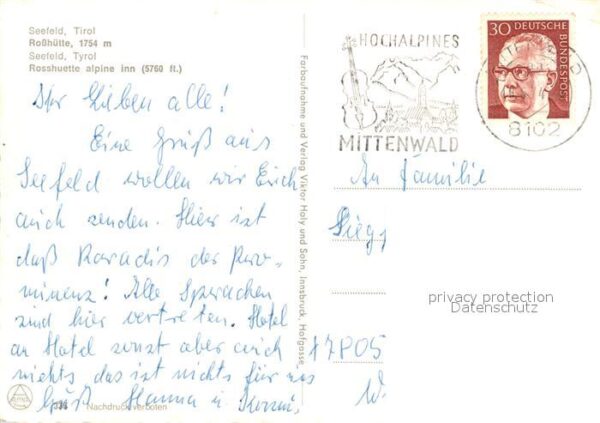 Seefeld, Tirol
Roßhütte, 1754 m
Seefeld, Tyrol
Rosshuette alpine inn (5760 ft.)
Ihr Lieben alle!
Eine Gruß aus
Seefeld wollen wir Euch
auch senden. Hier ist
daß Paradis der Pro-
minenz! Alle Sprachen
sind hier vertreten. Hotel
an Hotel sonst aber auch
nichts das ist nichts für uns
Gruß Hanna u
Nachdruck verboten
Farbaufnahme und Verlag Viktor Holy und Sohn, Innsbruck, Hofgasse
HOCHALPINES
MITTENWALD
30
DEUTSCHE
BUNDESPOST
8102
An Familie
privacy protection
Datenschutz